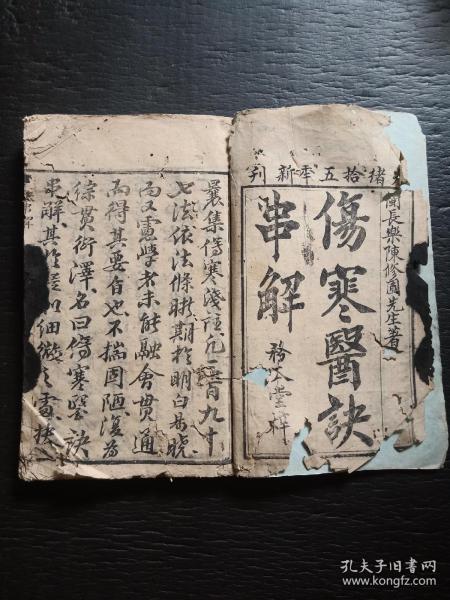 緒拾五年新刊
閩長樂陳修園先生著
傷寒醫訣
串解
務本堂梓
曩集傷寒淺註凡三百九十
七法依法條晰期於明白易曉
而又慮學者未能融會貫通
而得其要旨也不揣固陋復為
綜貫衍澤名曰傷寒醫訣
串解其於細微之處
孔夫子旧书网
www.kongfz.com